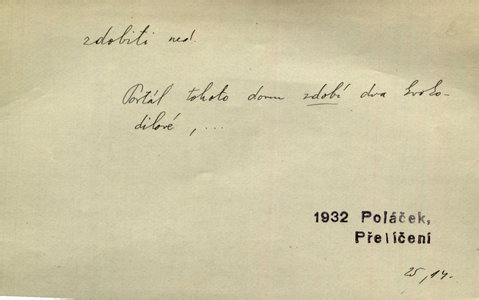 zdobiti ned.
Portál tohoto domu zdobí dva kroko-
dilové, ...
1932 Poláček,
Přelíčení
25, 14.